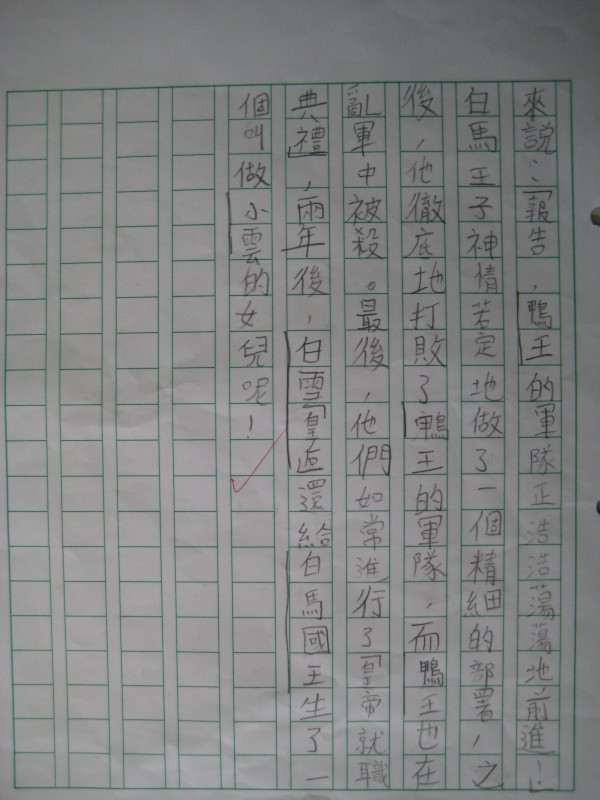 來說：「報告，鴨王的軍隊正浩浩蕩蕩地前進！」
白馬王子神情若定地做了一個精細的部署，之
後，他徹底地打敗了鴨王的軍隊，而鴨王也在
亂軍中被殺。最後，他們如常進行了「皇帝就職
典禮」，兩年後，白雪「皇后還給白馬國王生了一
個叫做小雲的女兒呢！